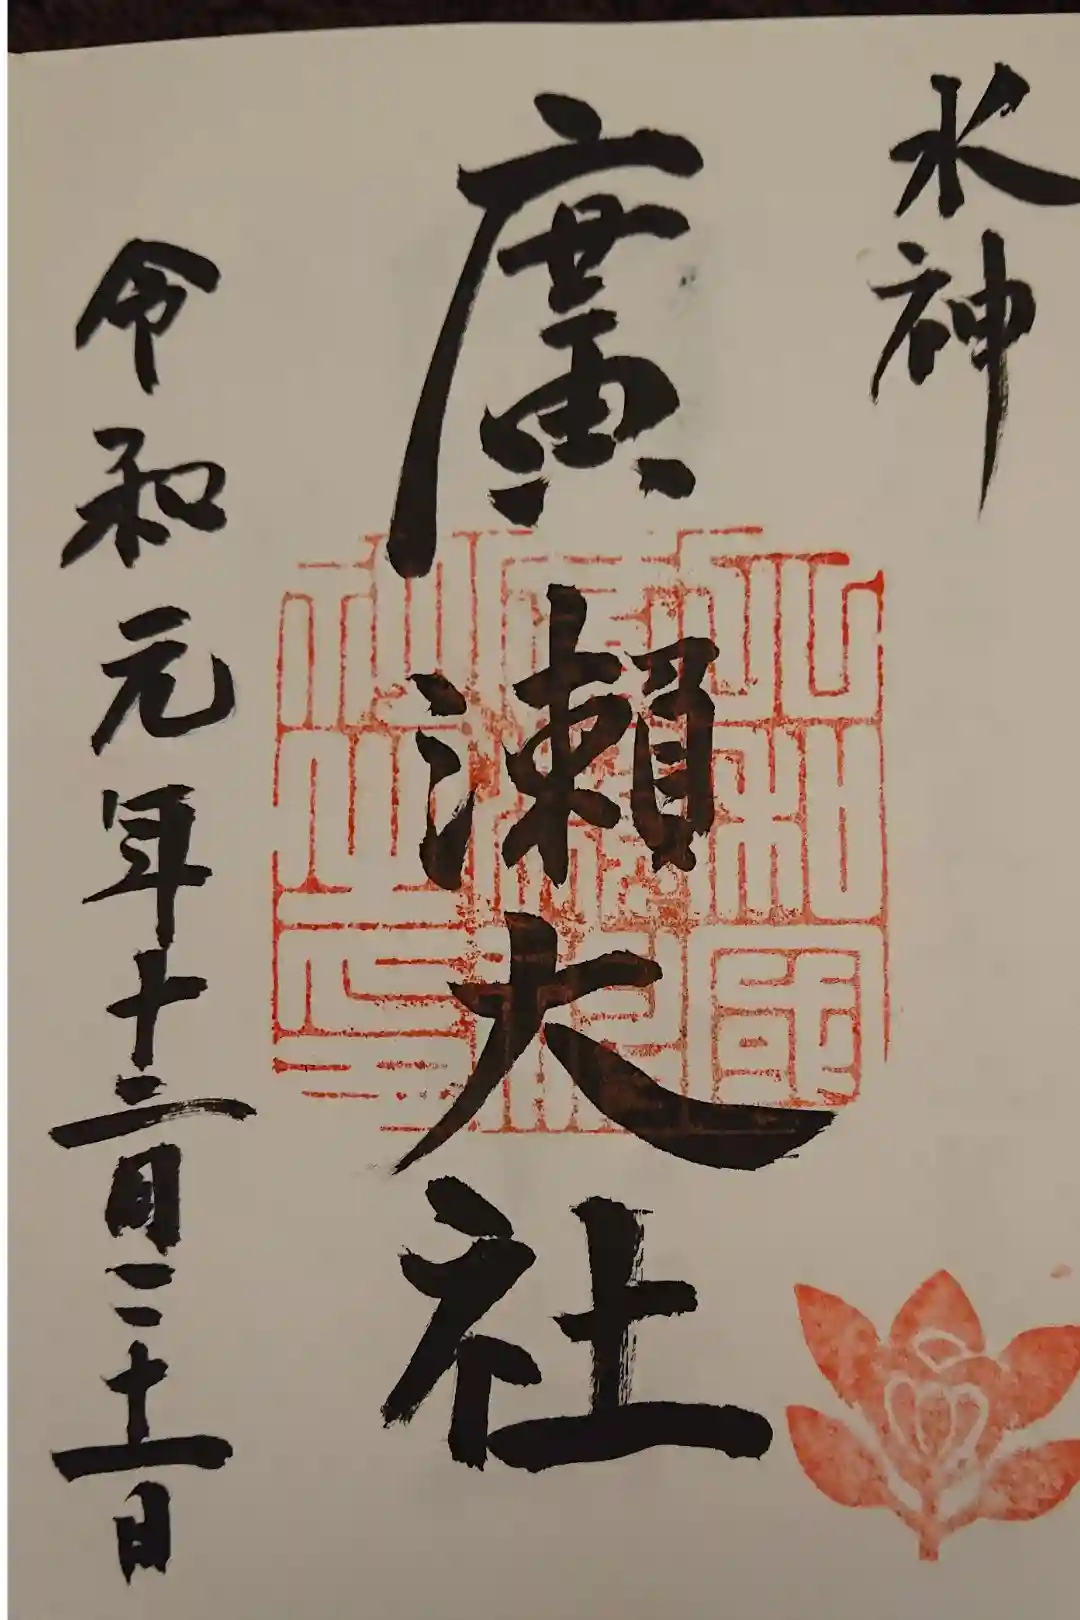 水神
廣瀬大社
令和元年十二月二十一日